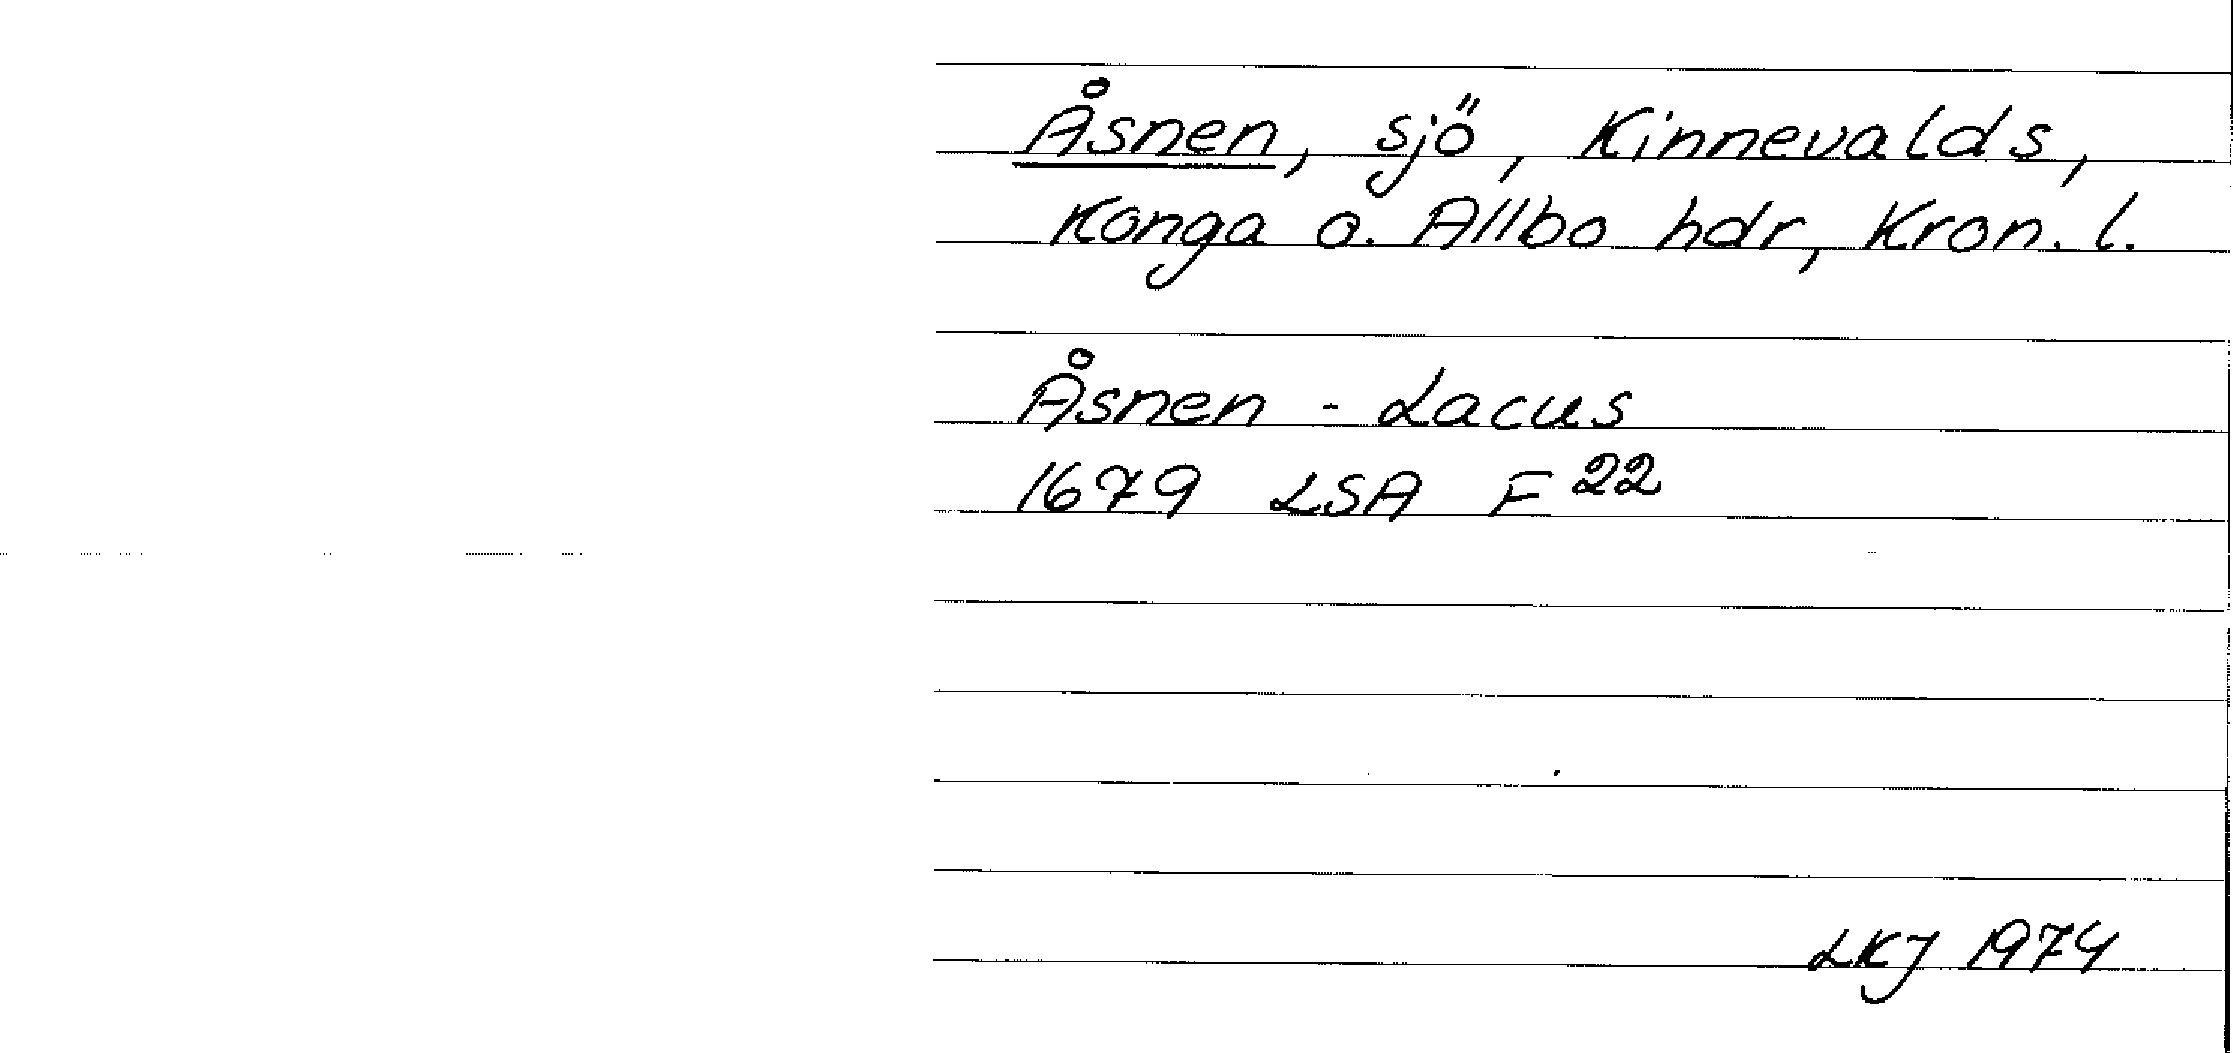 Åsnen, sjö, Kinnevalds,
Konga o. Allbo hdr, Kron. l.
Åsnen - Lacus
1679 LSA F 22
LKJ 1974